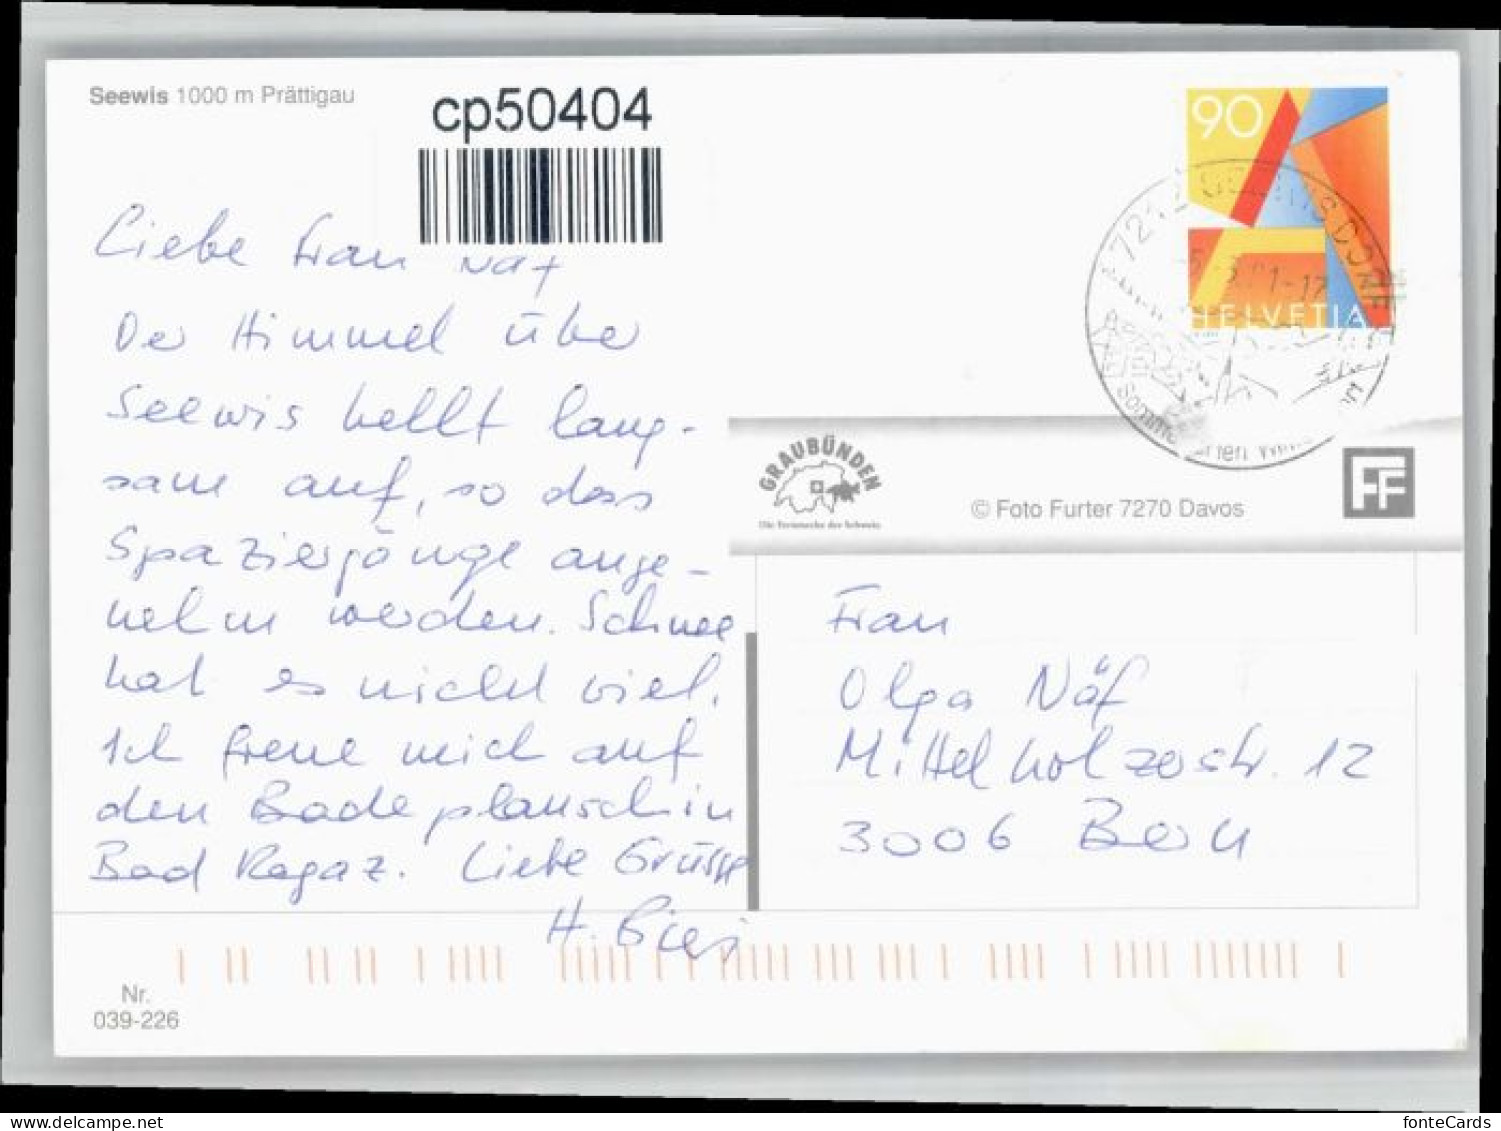 Seewis 1000 m Prättigau
cp50404
Liebe Frau Näf
Der Himmel über
Seewis hellt lang-
sam auf, so dass
Spaziergänge ange-
nehm werden. Schnee
hat es nicht viel.
Ich freue mich auf
den Badeplausch in
Bad Ragaz. Liebe Grüsse
H.
Nr.
039-226
90
HELVETIA
7212 SEEWIS DORF
GRAUBÜNDEN
Die Ferienecke der Schweiz
© Foto Furter 7270 Davos
FF
Frau
Olga Näf
Mittelholzerstr. 12
3006 Bern
fonteCards